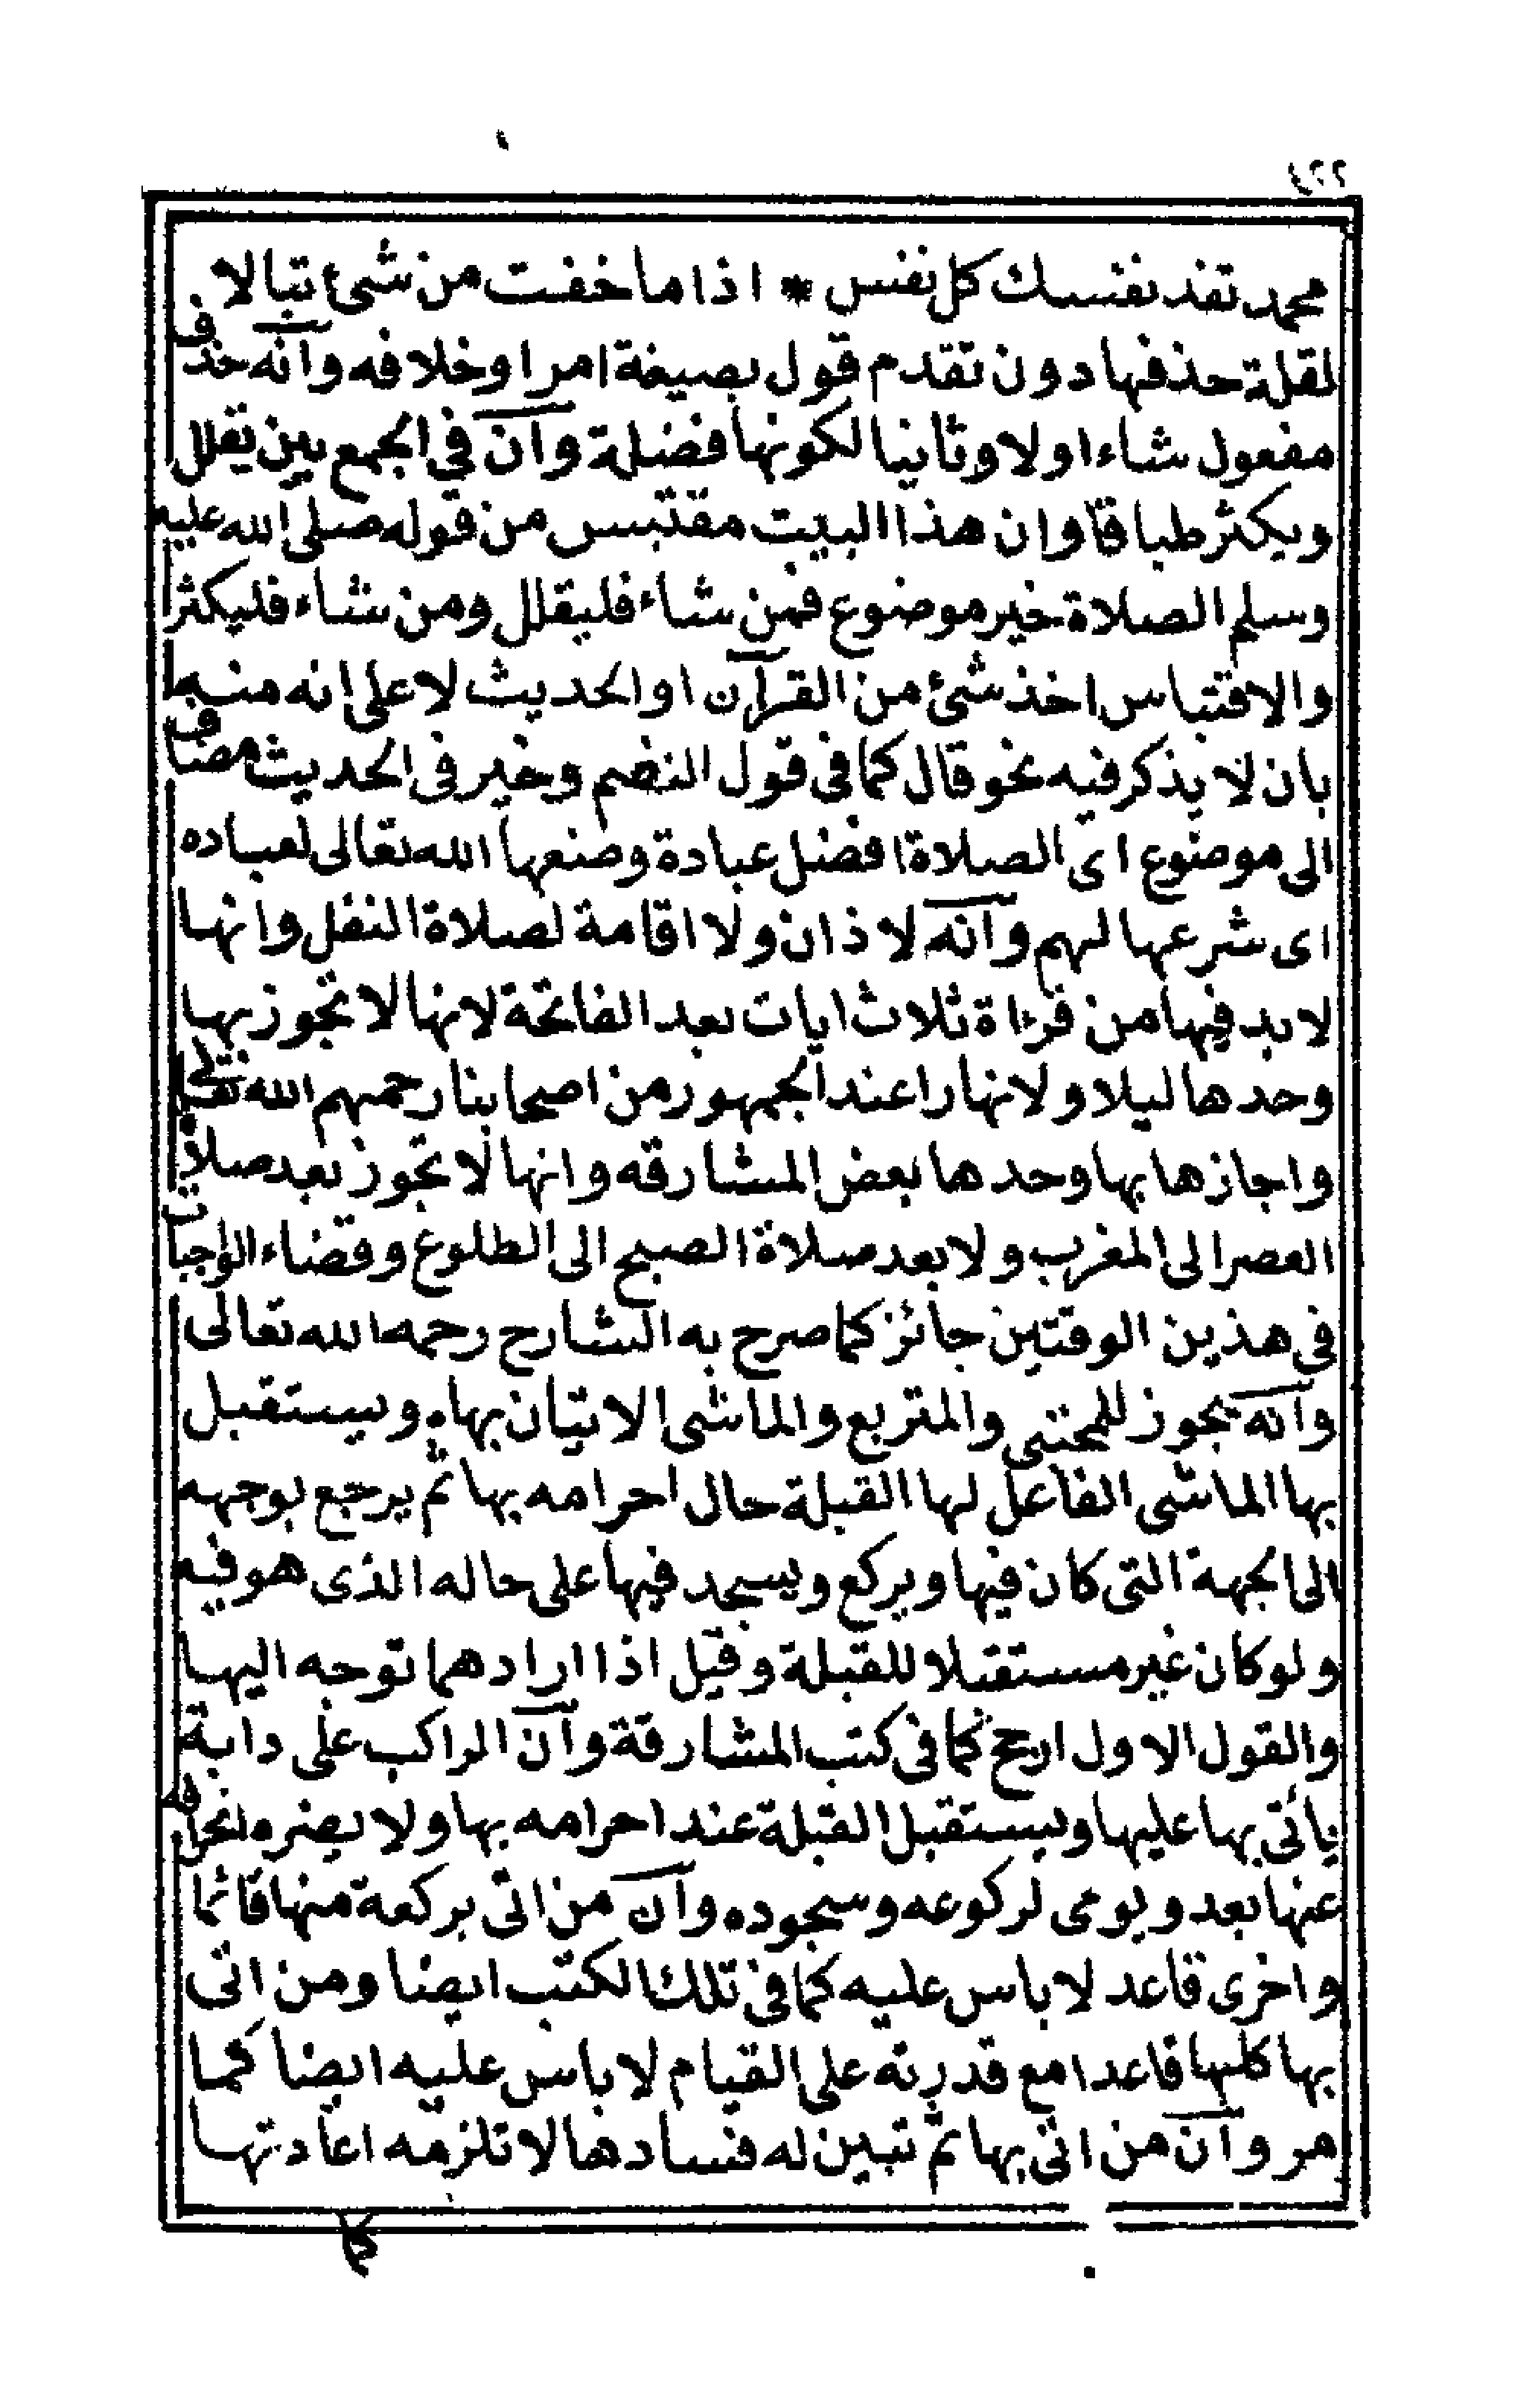 ٤٢٢
محمد تفد نفسك كل نفس * اذا ما خفت من شئ تبالا
لقلة حذفها دون تقدم قول بصيغة امرا وخلافه وانه حذف
مفعول شاء اولا وثانيا لكونها فضلة وان في الجمع بين يقلل
ويكثر طباقا وان هذا البيت مقتبس من قوله صلى الله عليه
وسلم الصلاة خير موضوع فمن شاء فليقلل ومن شاء فليكثر
والاقتباس اخذ شئ من القرآن او الحديث لا على انه منه
بان لا يذكر فيه نحو قال كما في قول النضم وخير فى الحديث مضاف
الى موضوع اى الصلاة افضل عبادة وضعها الله تعالى لعباده
اى شرعها لهم وانه لا ذان ولا اقامة لصلاة النفل وانها
لا بد فيها من قراة ثلاث ايات بعد الفاتحة لانها لا تجوز بها
وحدها ليلا ولا نهارا عند الجمهور من اصحابنا رحمهم الله تعالى
واجازها بها وحدها بعض المشارقه وانها لا تجوز بعد صلاة
العصر الى المغرب ولا بعد صلاة الصبح الى الطلوع وقضاء الواجبات
فى هذين الوقتين جائز كما صرح به الشارح رحمه الله تعالى
وانه يجوز للمحتبى والمتربع والماشى الاتيان بها ويستقبل
بها الماشى الفاعل لها القبلة حال احرامه بها ثم يرجع بوجهه
الى الجهة التى كان فيها ويركع ويسجد فيها على حاله الذى هو فيه
ولو كان غير مستقبلا للقبلة وقيل اذا ارادهما توجه اليها
والقول الاول ارجح كما فى كتب المشارقة وان الراكب على دابة
يأتى بها عليها ويستقبل القبلة عند احرامه بها ولا يضره انحرافه
عنها بعد ويومى لركوعه وسجوده وان من اتى بركعة منها قائما
واخرى قاعد لا باس عليه كما فى تلك الكتب ايضا ومن اتى
بها كلها قاعدا مع قدرته على القيام لا باس عليه ايضا كما
مر وان من اتى بها ثم تبين له فسادها لا تلزمه اعادتها
كما